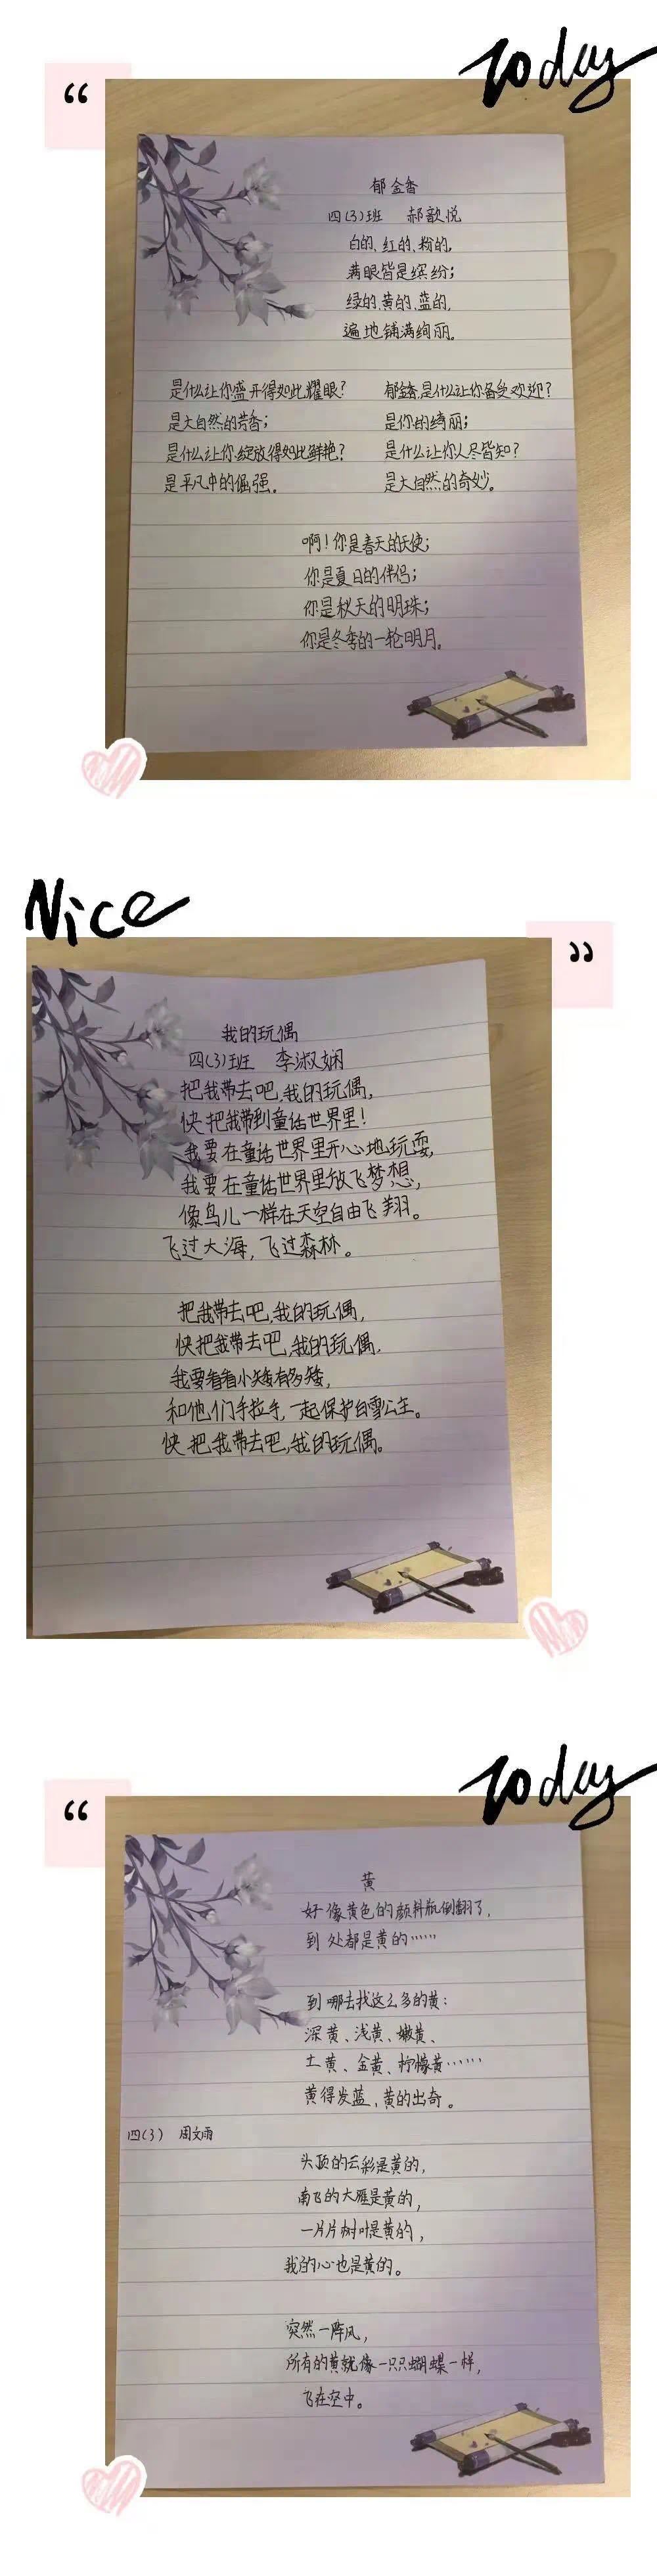 Today
“
郁金香
四(3)班 郝歆悦
白的、红的、粉的,
满眼皆是缤纷;
绿的、黄的、蓝的,
遍地铺满绚丽。
是什么让你盛开得如此耀眼?
是大自然的芳香;
是什么让你绽放得如此鲜艳?
是平凡中的倔强。
郁金香,是什么让你备受欢迎?
是你的绮丽;
是什么让你人尽皆知?
是大自然的奇妙。
啊!你是春天的天使;
你是夏日的伴侣;
你是秋天的明珠;
你是冬季的一轮明月。
Nice
”
我的玩偶
四(3)班 李淑娴
把我带去吧,我的玩偶,
快把我带到童话世界里!
我要在童话世界里开心地玩耍,
我要在童话世界里放飞梦想,
像鸟儿一样在天空自由飞翔。
飞过大海,飞过森林。
把我带去吧,我的玩偶,
快把我带去吧,我的玩偶,
我要看看小矮有多矮,
和他们手拉手,一起保护白雪公主。
快把我带去吧,我的玩偶。
Today
“
黄
好像黄色的颜料瓶倒翻了,
到处都是黄的……
到哪去找这么多的黄:
深黄、浅黄、嫩黄、
土黄、金黄、柠檬黄……
黄得发蓝,黄的出奇。
四(3) 周文雨
头顶的云彩是黄的,
南飞的大雁是黄的,
一片片树叶是黄的,
我的心也是黄的。
突然一阵风,
所有的黄就像一只只蝴蝶一样,
飞在空中。